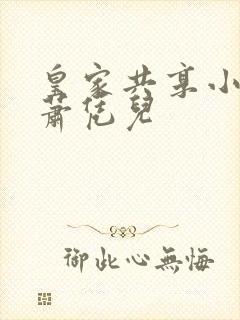 皇家共享小
蕭恁兒
御此心無悔